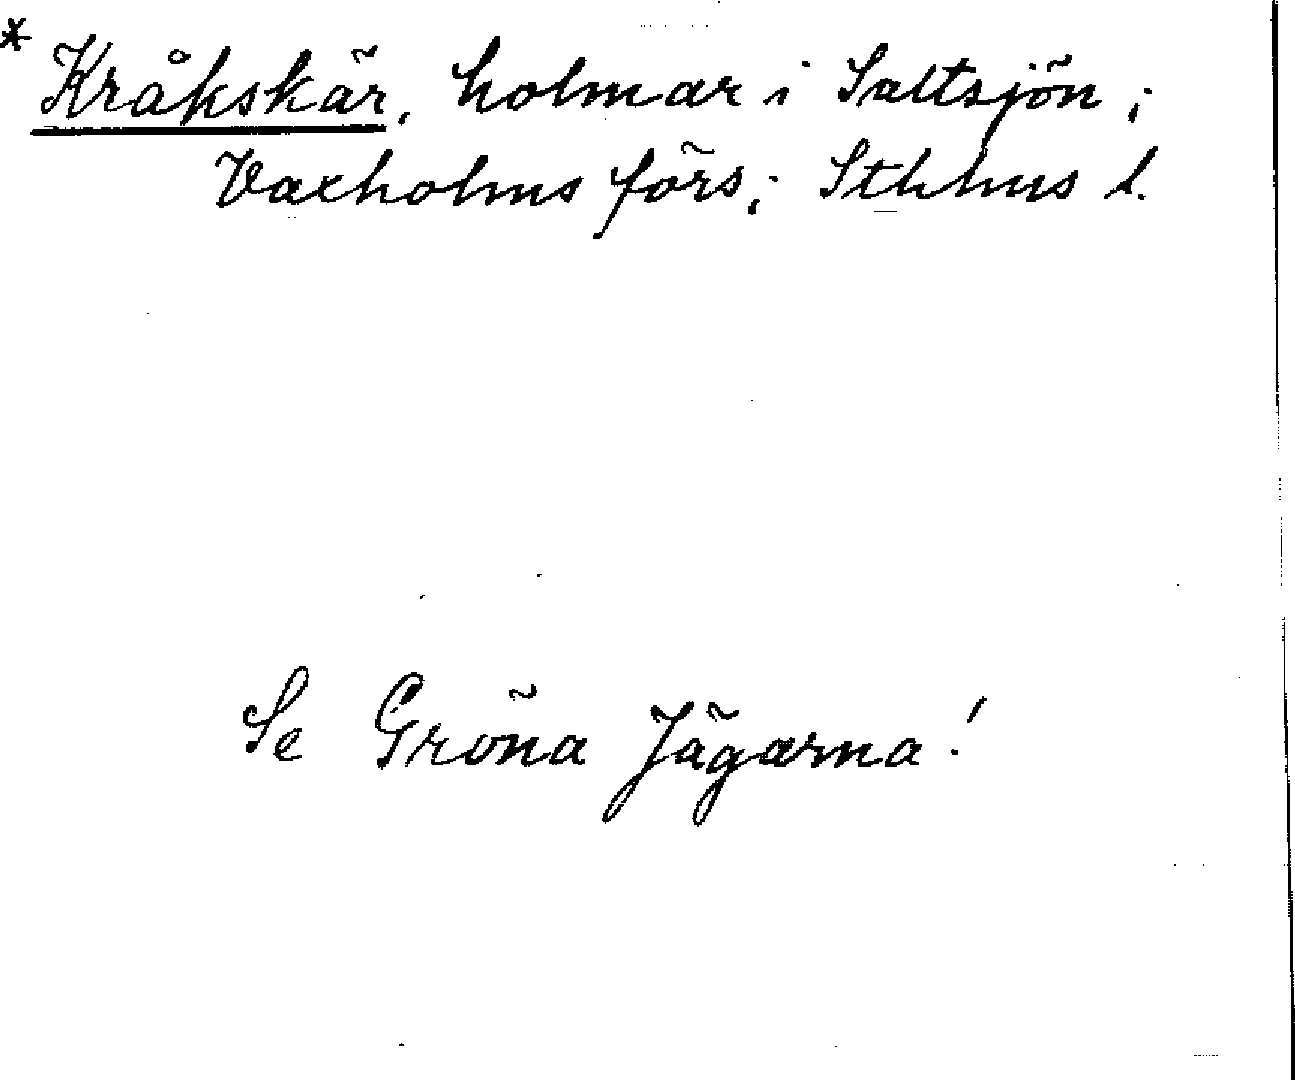 * Kråkskär, holmar i Saltsjön;
Vaxholms förs; Sthhms l.
Se Gröna Jägarna!